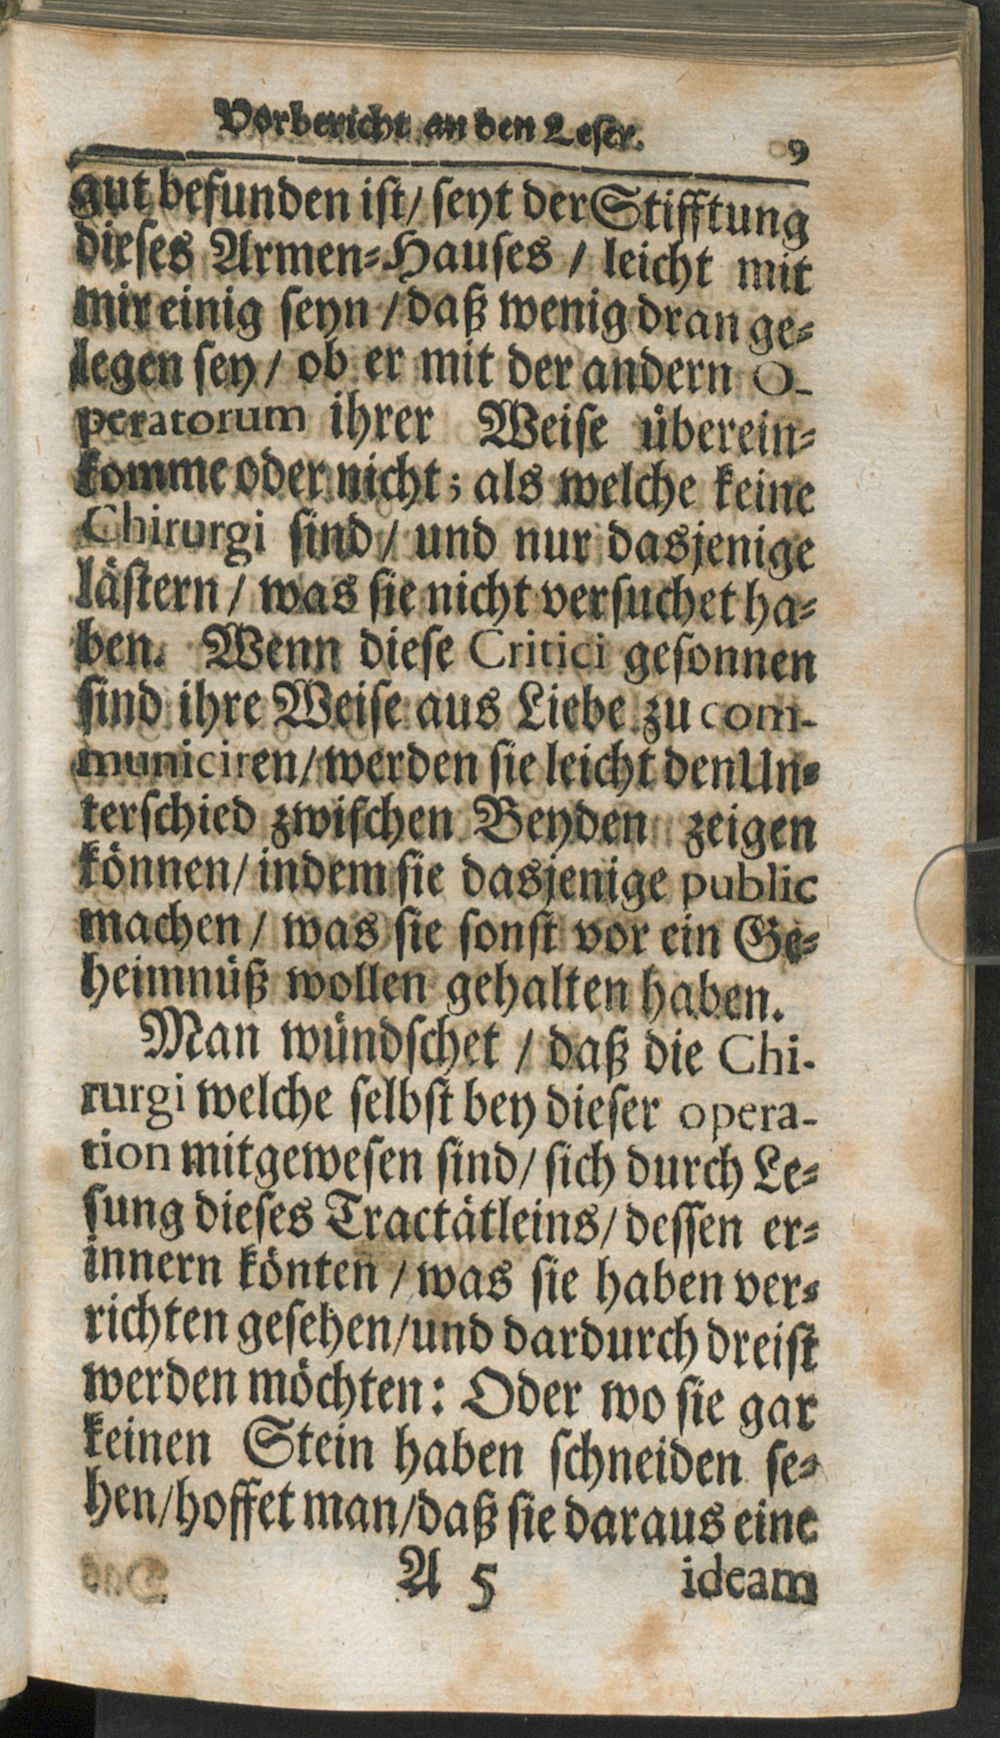 Vorbericht an den Leser. 9
gut befunden ist/ seyt der Stifftung
dieses Armen-Hauses / leicht mit
mir einig seyn / daß wenig dran ge-
legen sey / ob er mit der andern O-
peratorum ihrer Weise überein-
komme oder nicht; als welche keine
Chirurgi sind / und nur dasjenige
lästern / was sie nicht versuchet ha-
ben. Wenn diese Critici gesonnen
sind ihre Weise aus Liebe zu com-
municiren/ werden sie leicht den Un-
terschied zwischen Beyden zeigen
können/ indem sie dasjenige public
machen / was sie sonst vor ein Ge-
heimnüß wollen gehalten haben.
Man wündschet / daß die Chi-
rurgi welche selbst bey dieser opera-
tion mitgewesen sind/ sich durch Le-
sung dieses Tractätleins/ dessen er-
innern könten / was sie haben ver-
richten gesehen/und dardurch dreist
werden möchten: Oder wo sie gar
keinen Stein haben schneiden se-
hen/hoffet man/daß sie daraus eine
A 5 ideam